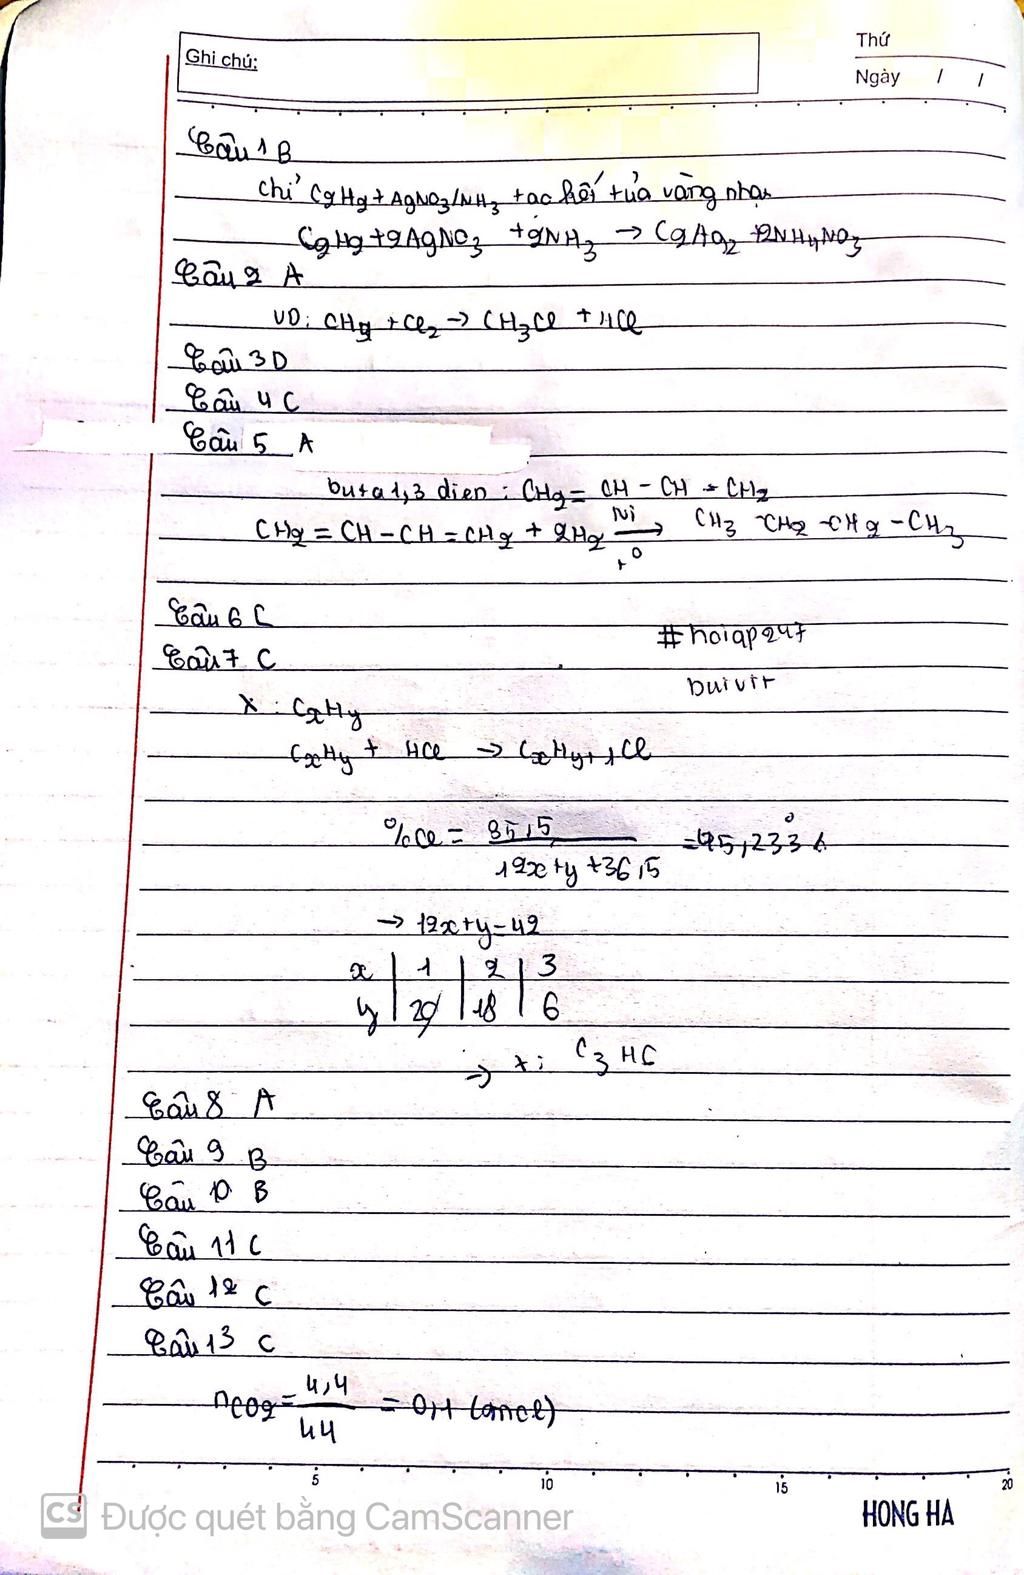 Ghi chú:
Thứ
Ngày / /
Câu 1 B
Chỉ C2H2 + AgNO3/NH3 tạo kết tủa vàng nhạt
C2H2 + 2AgNO3 + 2NH3 → C2Ag2 + 2NH4NO3
Câu 2 A
VD: CH4 + Cl2 → CH3Cl + HCl
Câu 3 D
Câu 4 C
Câu 5 A
buta 1,3 dien : CH2 = CH - CH = CH2
CH2 = CH - CH = CH2 + 2H2 Ni → t° CH3 - CH2 - CH2 - CH3
Câu 6 C
#hoiap247
Câu 7 C
buivit
X : CxHy
CxHy + HCl → CxHy+1Cl
%Cl = 35,5 / 12x+y+36,5 = 45,233%
→ 12x+y=42
x | 1 | 2 | 3
y | 20 | 18 | 6
→ X: C3H6
Câu 8 A
Câu 9 B
Câu 10 B
Câu 11 C
Câu 12 C
Câu 13 C
nCO2 = 4,4 / 44 = 0,1 (mol)
5 10 15 20
HONG HA
CS Được quét bằng CamScanner